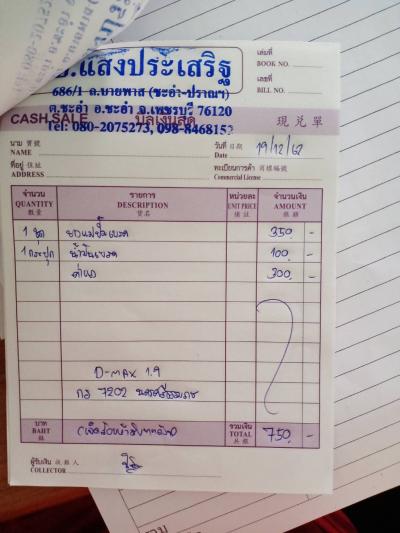 .แสงประเสริฐ
686/1 ถ.บายพาส (ชะอำ-ปราณฯ)
ต.ชะอำ อ.ชะอำ จ.เพชรบุรี 76120
Tel: 080-2075273, 098-8468152
เล่มที่
BOOK NO.
เลขที่
BILL NO.
CASH SALE บิลเงินสด 現兌單
นาม 寶號
NAME
วันที่ 日期
Date 19/12/62
ที่อยู่ 住址
ADDRESS
ทะเบียนการค้า 商標編號
Commercial License
จำนวน รายการ หน่วยละ จำนวนเงิน
QUANTITY DESCRIPTION UNIT PRICE AMOUNT
數量 貨名 銀額
1 ชุด ยางแม่ปั๊มเบรค 350 -
1 กระปุก น้ำมันเบรค 100 -
ค่าแรง 300 -
D-MAX 1.9
กอ 7202 นครศรีธรรมราช
บาท (เจ็ดร้อยห้าสิบบาทถ้วน) รวมเงิน 750 -
BAHT TOTAL
銖 共銀
ผู้รับเงิน 收銀人
COLLECTOR